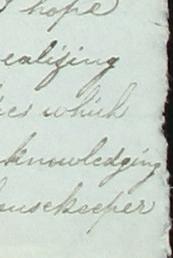 hope
ealizing
which
knowledging
ousekeeper